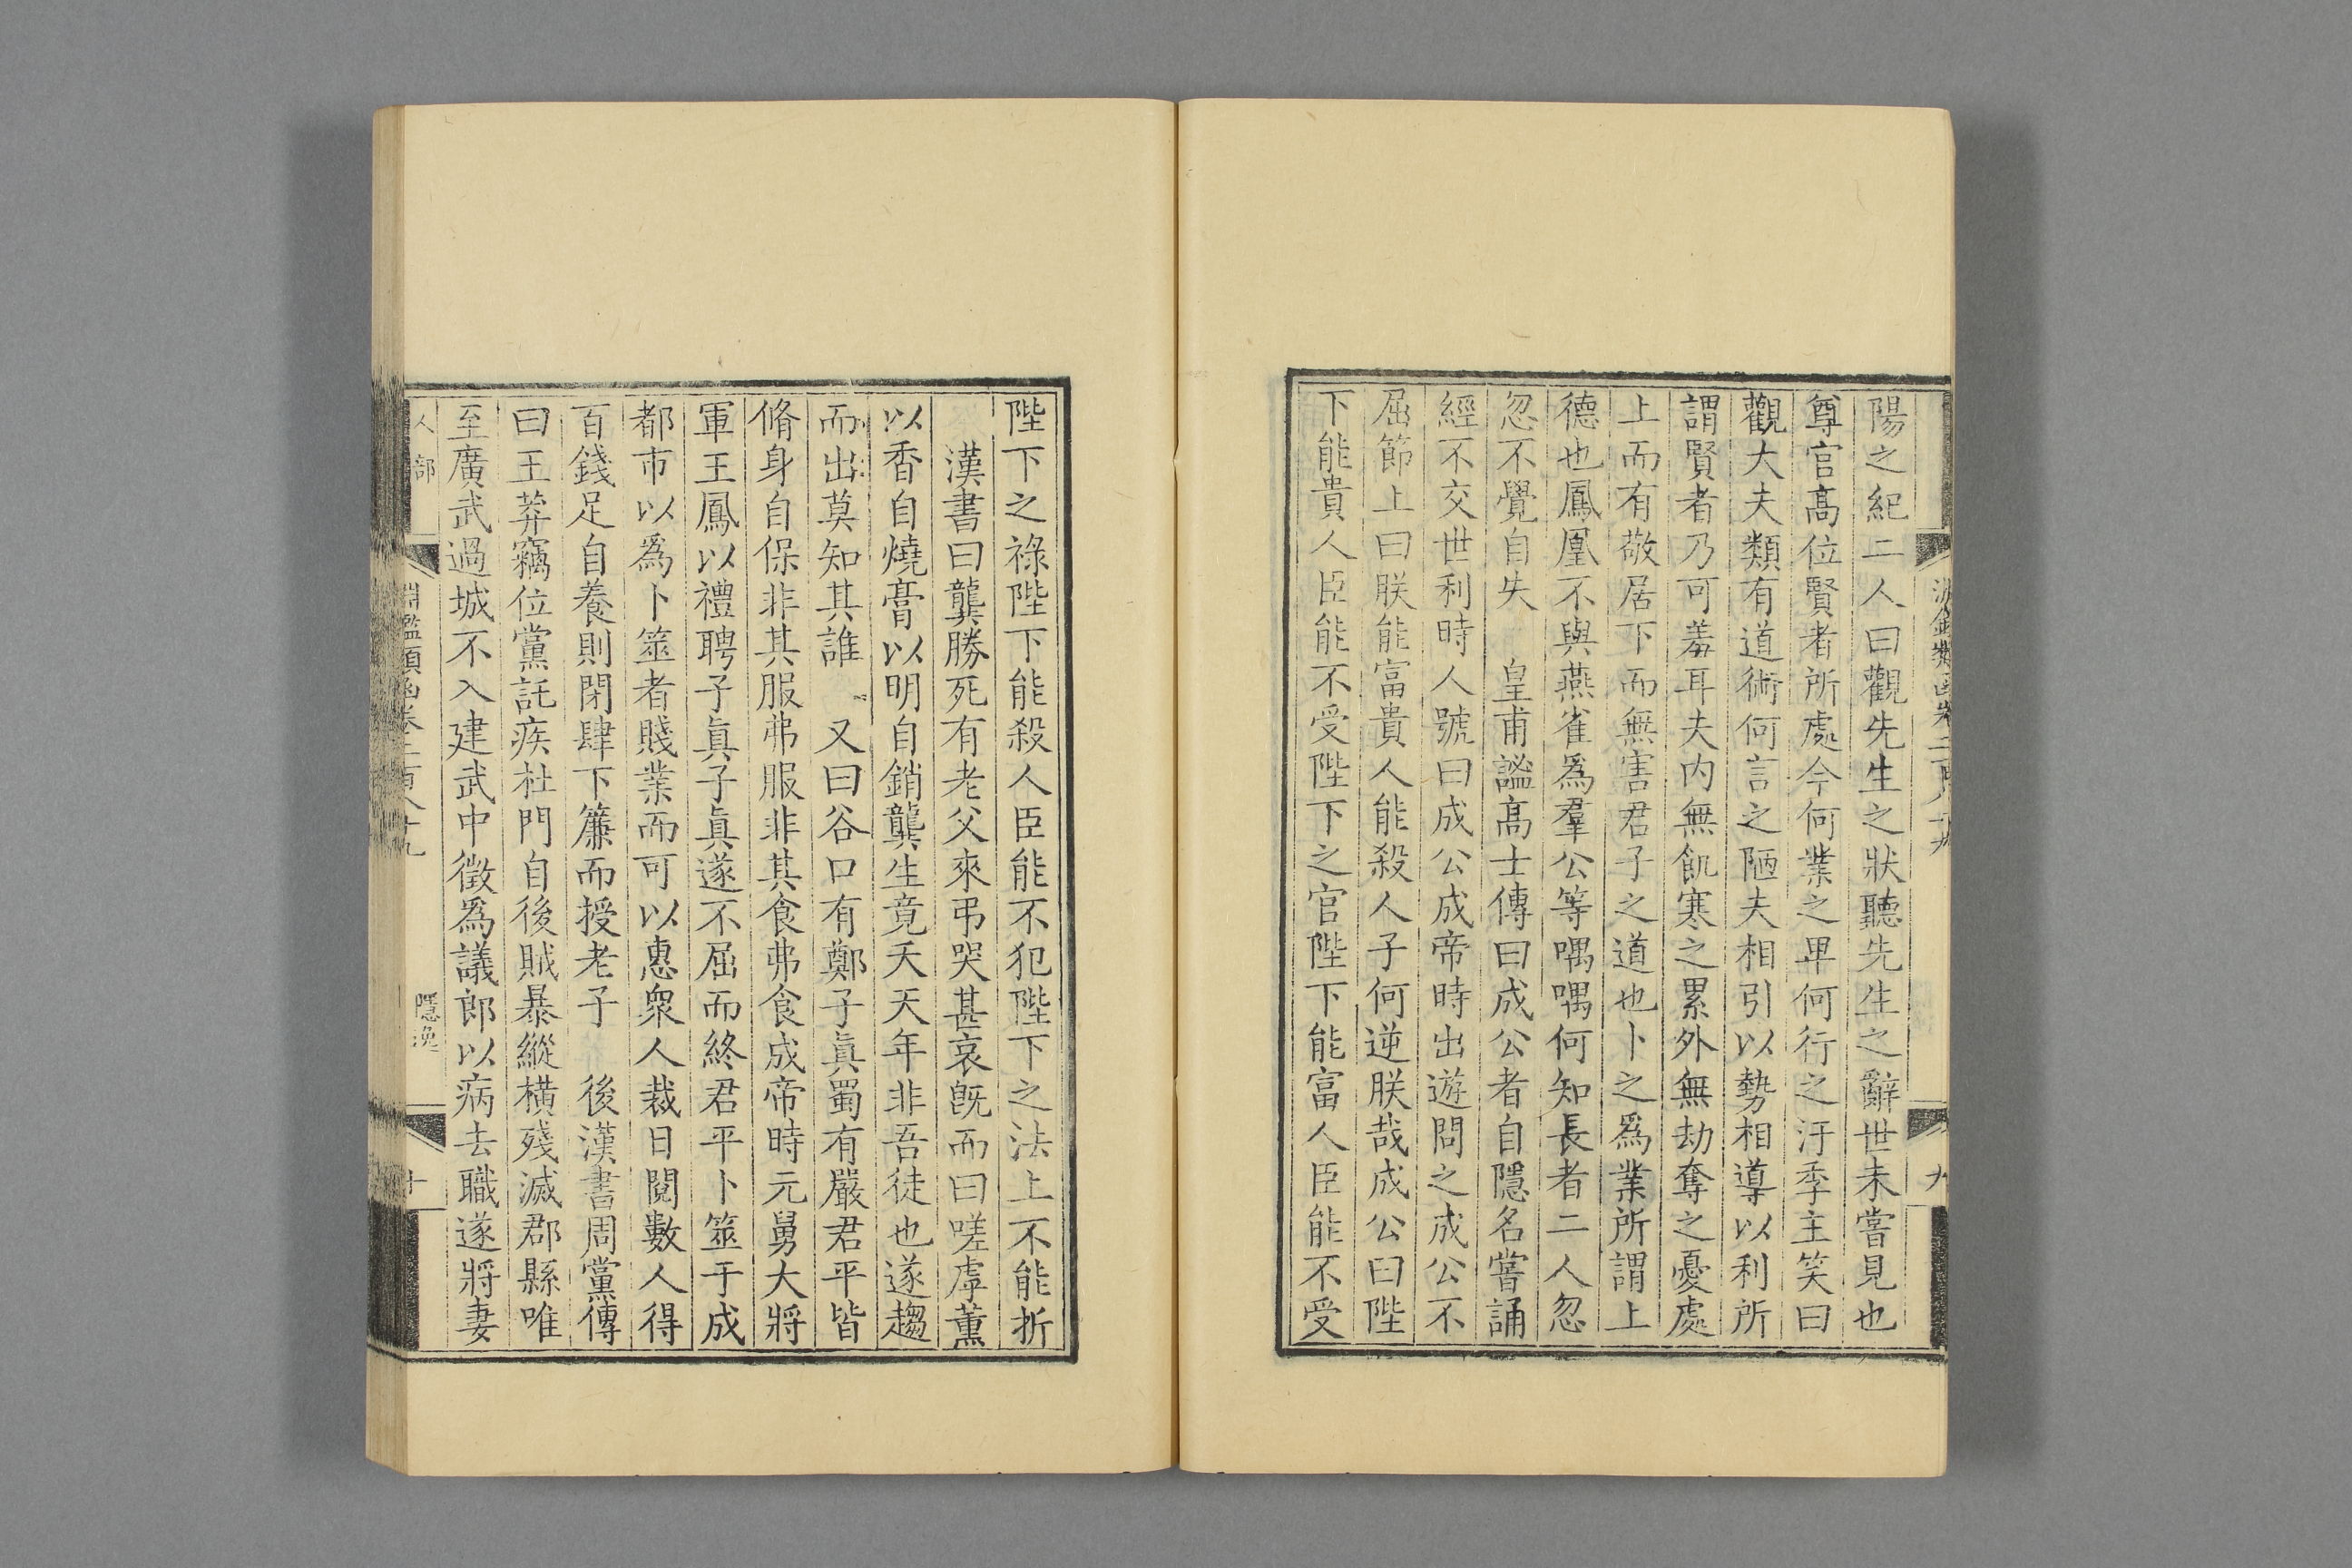 陽之紀二人曰觀先生之狀聽先生之辭世未嘗見也
尊官高位賢者所處今何業之卑何行之汙季主笑曰
觀大夫類有道術何言之陋夫相引以勢相導以利所
謂賢者乃可羞耳夫内無飢寒之累外無劫奪之憂處
上而有敬居下而無害君子之道也卜之爲業所謂上
德也鳳凰不與燕雀爲羣公等喁喁何知長者二人忽
忽不覺自失　皇甫謐高士傳曰成公者自隱名嘗誦
經不交世利時人號曰成公成帝時出遊問之成公不
屈節上曰朕能富貴人能殺人子何逆朕哉成公曰陛
下能貴人臣能不受陛下之官陛下能富人臣能不受
陛下之祿陛下能殺人臣能不犯陛下之法上不能折
漢書曰龔勝死有老父來弔哭甚哀旣而曰嗟虖薰
以香自燒膏以明自銷龔生竟夭天年非吾徒也遂趨
而出莫知其誰　又曰谷口有鄭子眞蜀有嚴君平皆
脩身自保非其服弗服非其食弗食成帝時元舅大將
軍王鳳以禮聘子眞子眞遂不屈而終君平卜筮于成
都市以爲卜筮者賤業而可以惠衆人裁日閱數人得
百錢足自養則閉肆下簾而授老子　後漢書周黨傳
曰王莽竊位黨託疾杜門自後賊暴縱橫殘滅郡縣唯
至廣武過城不入建武中徵爲議郎以病去職遂將妻
人部
淵鑑類函卷二百八十九
隱逸
十